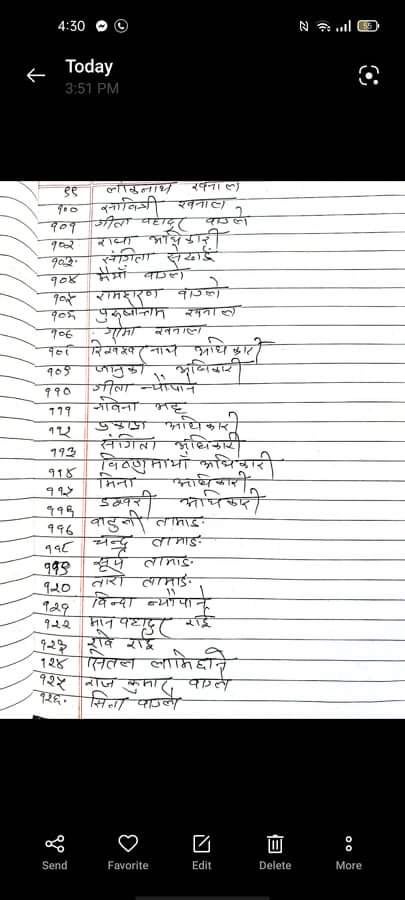 4:30
55
Today
3:51 PM
९९ लोकनाथ खनाल
१०० सावित्री खनाल
१०१ गीता बहादुर वाग्ले
१०२ राधा अधिकारी
१०३. संगिता
१०४ मैयाँ वाग्ले
१०५ रामशरण वाग्ले
१०६ पुरुषोत्तम खनाल
१०७ गोमा खनाल
१०८ नाथ अधिकारी
१०९ जानुका अधिकारी
११० गीता न्यौपाने
१११ नविना भट्ट
११२ प्रकाश अधिकारी
११३ संगिता अधिकारी
११४ विष्णुमाया अधिकारी
११५ मिना अधिकारी
११६ डम्बरी अधिकारी
११७ तामाङ
११८ चन्द्र तामाङ
११९ सूर्य तामाङ
१२० तारा तामाङ
१२१ विन्दा न्यौपाने
१२२ मान बहादुर राई
१२३ रवि राई
१२४ सितल लामिछाने
१२५ राज कुमार वाग्ले
१२६. सिता वाग्ले
Send Favorite Edit Delete More